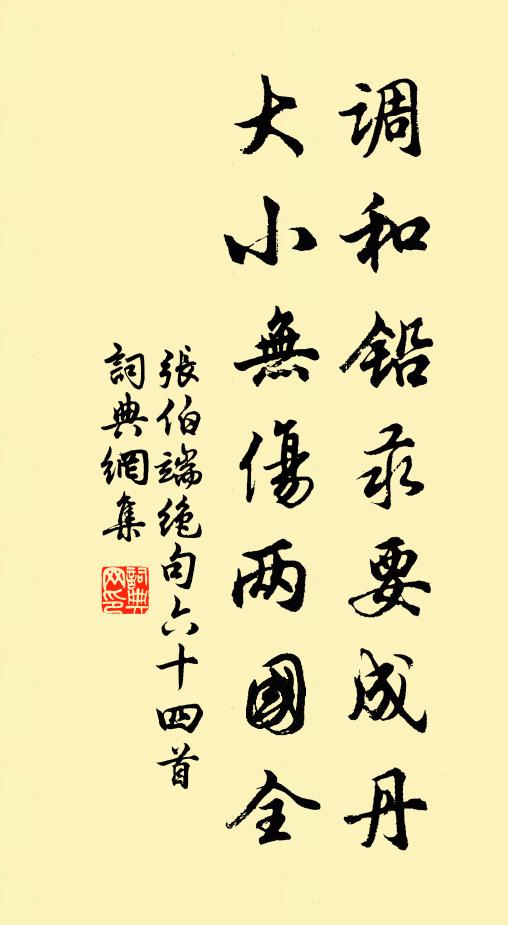 調和鉛汞要成丹
大小無傷两國全
張伯端絶句六十四首
詞典網集
詞典网印